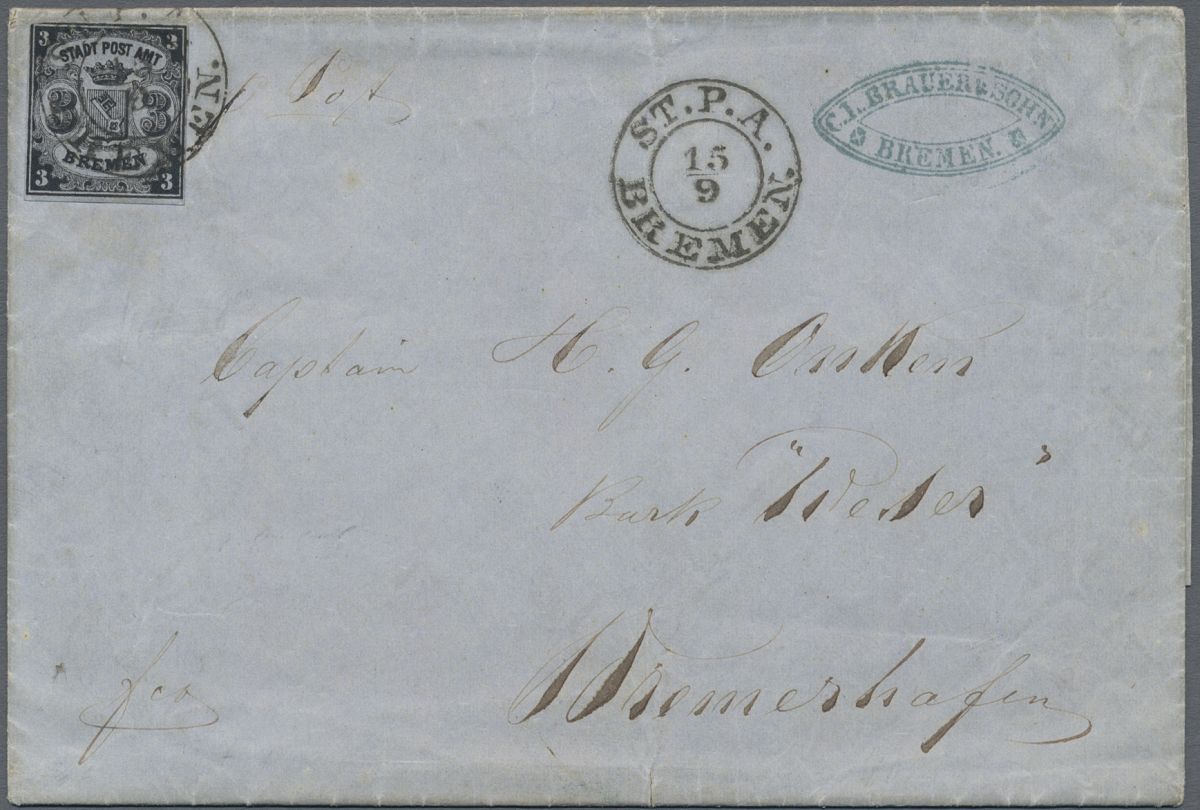 3 3
STADT POST AMT
3 3
BREMEN
3 3
EN.
ST.P.A.
15
9
BREMEN.
C.L. BRAUER & SOHN
BREMEN.
Captain H. G. Onken
Bark "Weser"
Bremerhafen
fco